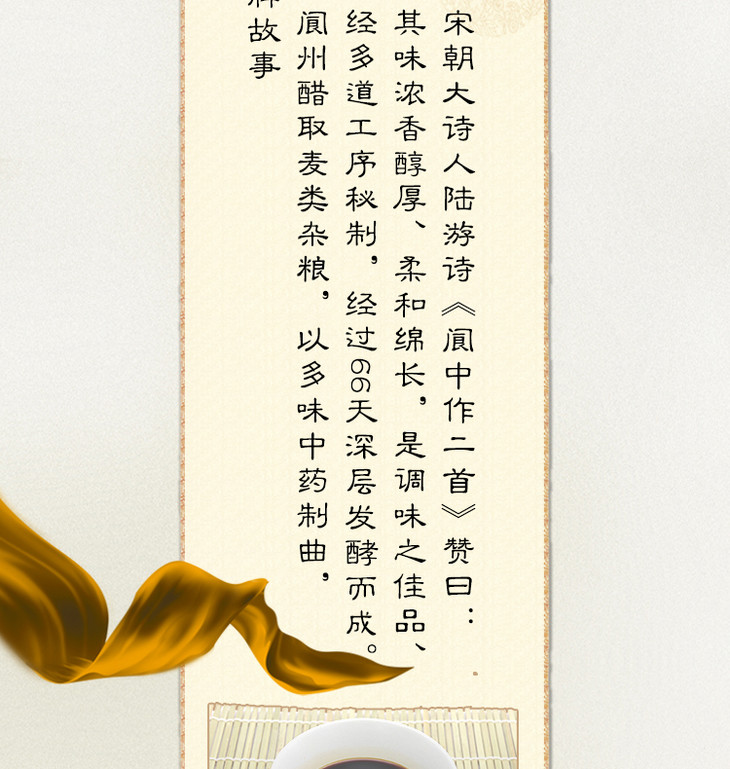 故事
阆州醋取麦类杂粮，以多味中药制曲，
经多道工序秘制，经过66天深层发酵而成。
其味浓香醇厚、柔和绵长，是调味之佳品、
宋朝大诗人陆游诗《阆中作二首》赞曰：